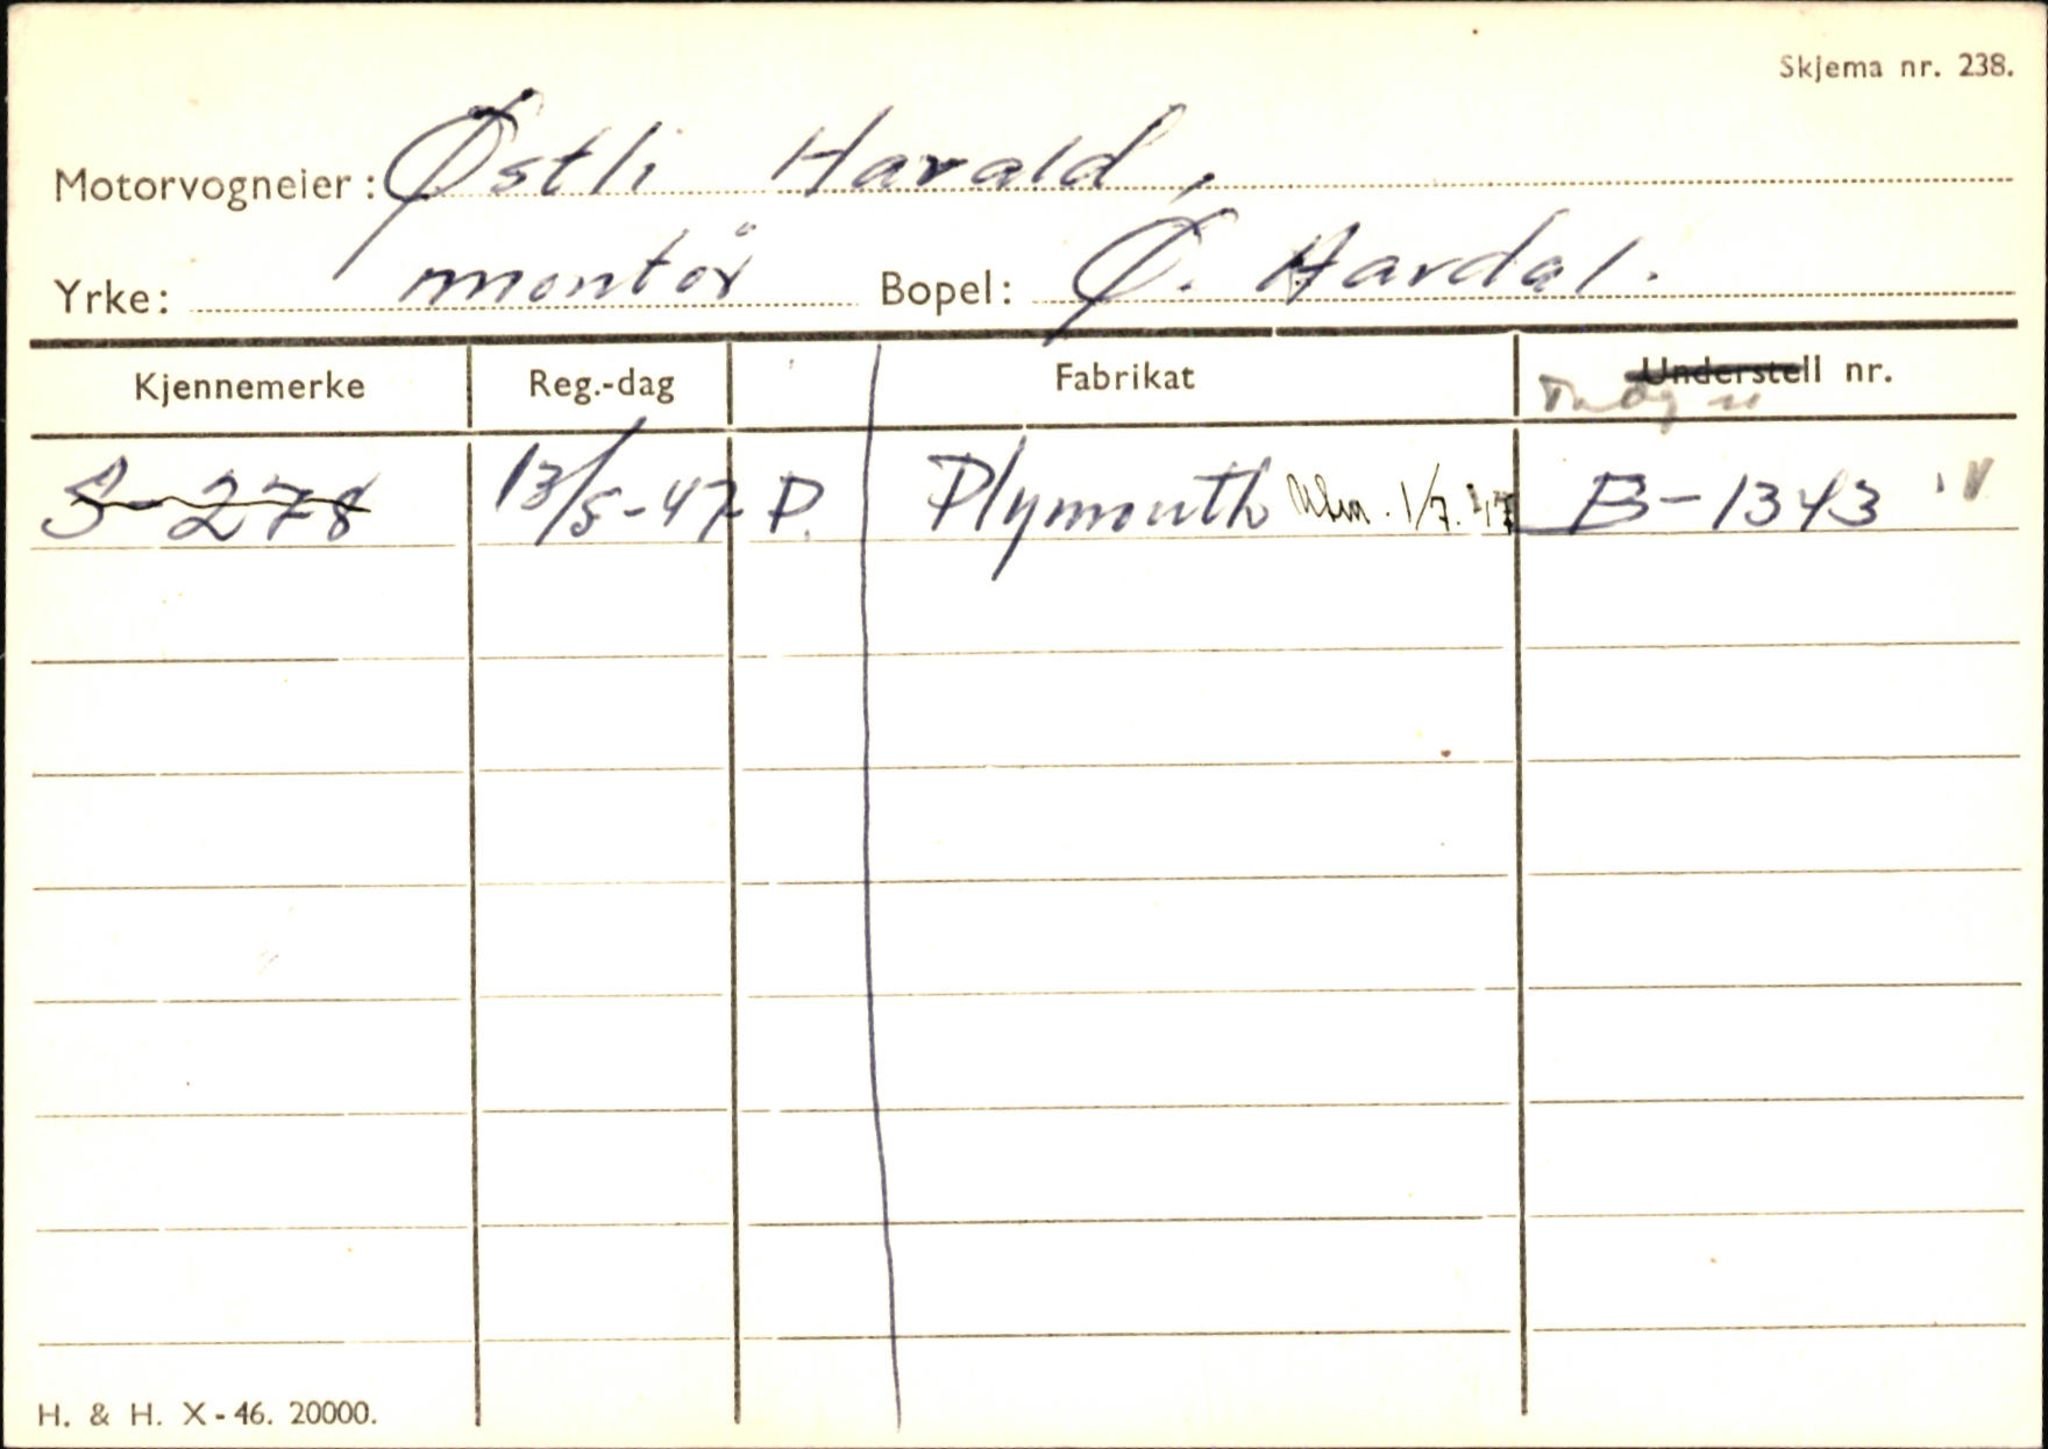 Skjema nr. 238.
Motorvogneier: Østli Harald,
Yrke: montör Bopel: Ø. Aardal.
Kjennemerke Reg.-dag Fabrikat Understell nr.
S-278 13/5-47 P. Plymouth 1/7. 47 B-1343
H. & H. X-46. 20000.